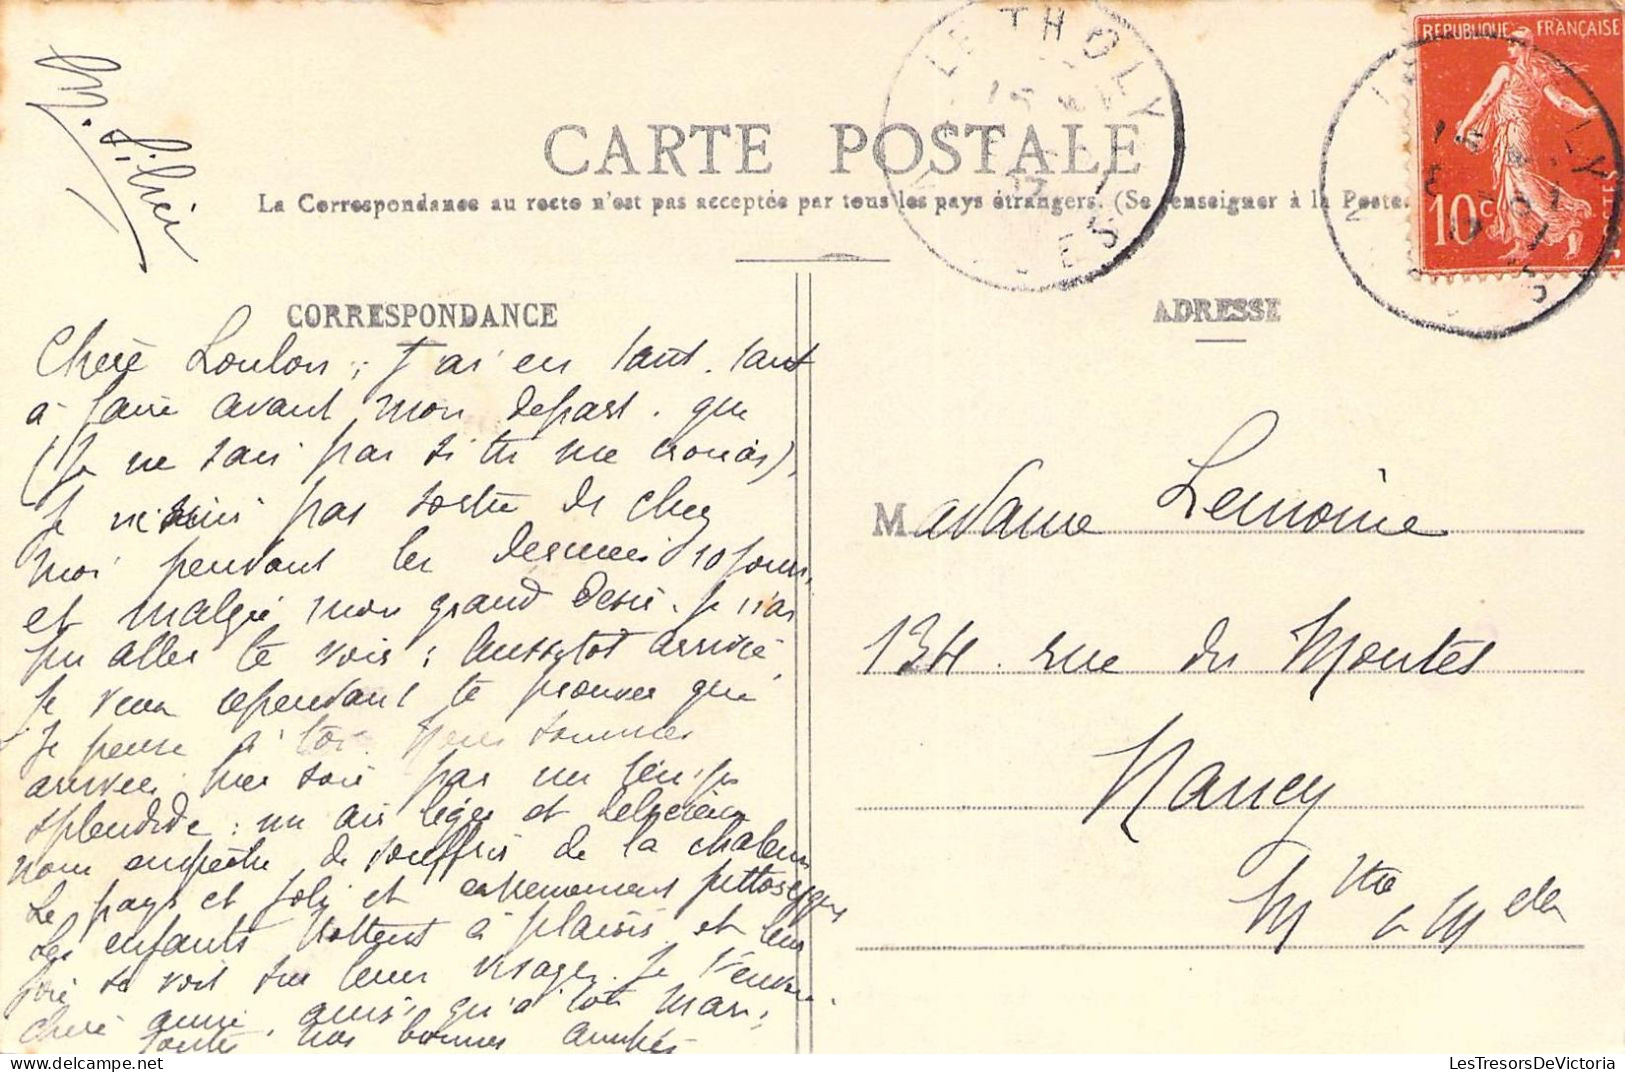 LE THOLY
REPUBLIQUE FRANÇAISE
10c
CARTE POSTALE
La Correspondance au recto n'est pas acceptée par tous les pays étrangers. (Se renseigner à la Poste.
CORRESPONDANCE
ADRESSE
Chère Loulou, J'ai eu tant, tant
à faire avant mon départ, que
(Je ne sais pas si tu me croiras),
Je ne suis pas sortie de chez
moi pendant les derniers 10 jours,
et malgré mon grand désir, Je n'ai
pu aller te voir ; Aussitôt arrivée,
Je veux cependant te prouver que
Je pense à toi. Nous sommes
arrivés hier soir par un temps
splendide : un air léger et délicieux
nous empêche de souffrir de la chaleur
Le pays et joli et extrêmement pittoresque
Les enfants trottent à plaisir et leur
joie se voit sur leur visage. Je t'envoie
chère amie, ainsi qu'à ton mari,
toutes nos bonnes amitiés
Madame Lemoine
134. rue du Montet
Nancy
Mthe & Mdelle
LesTresorsDeVictoria